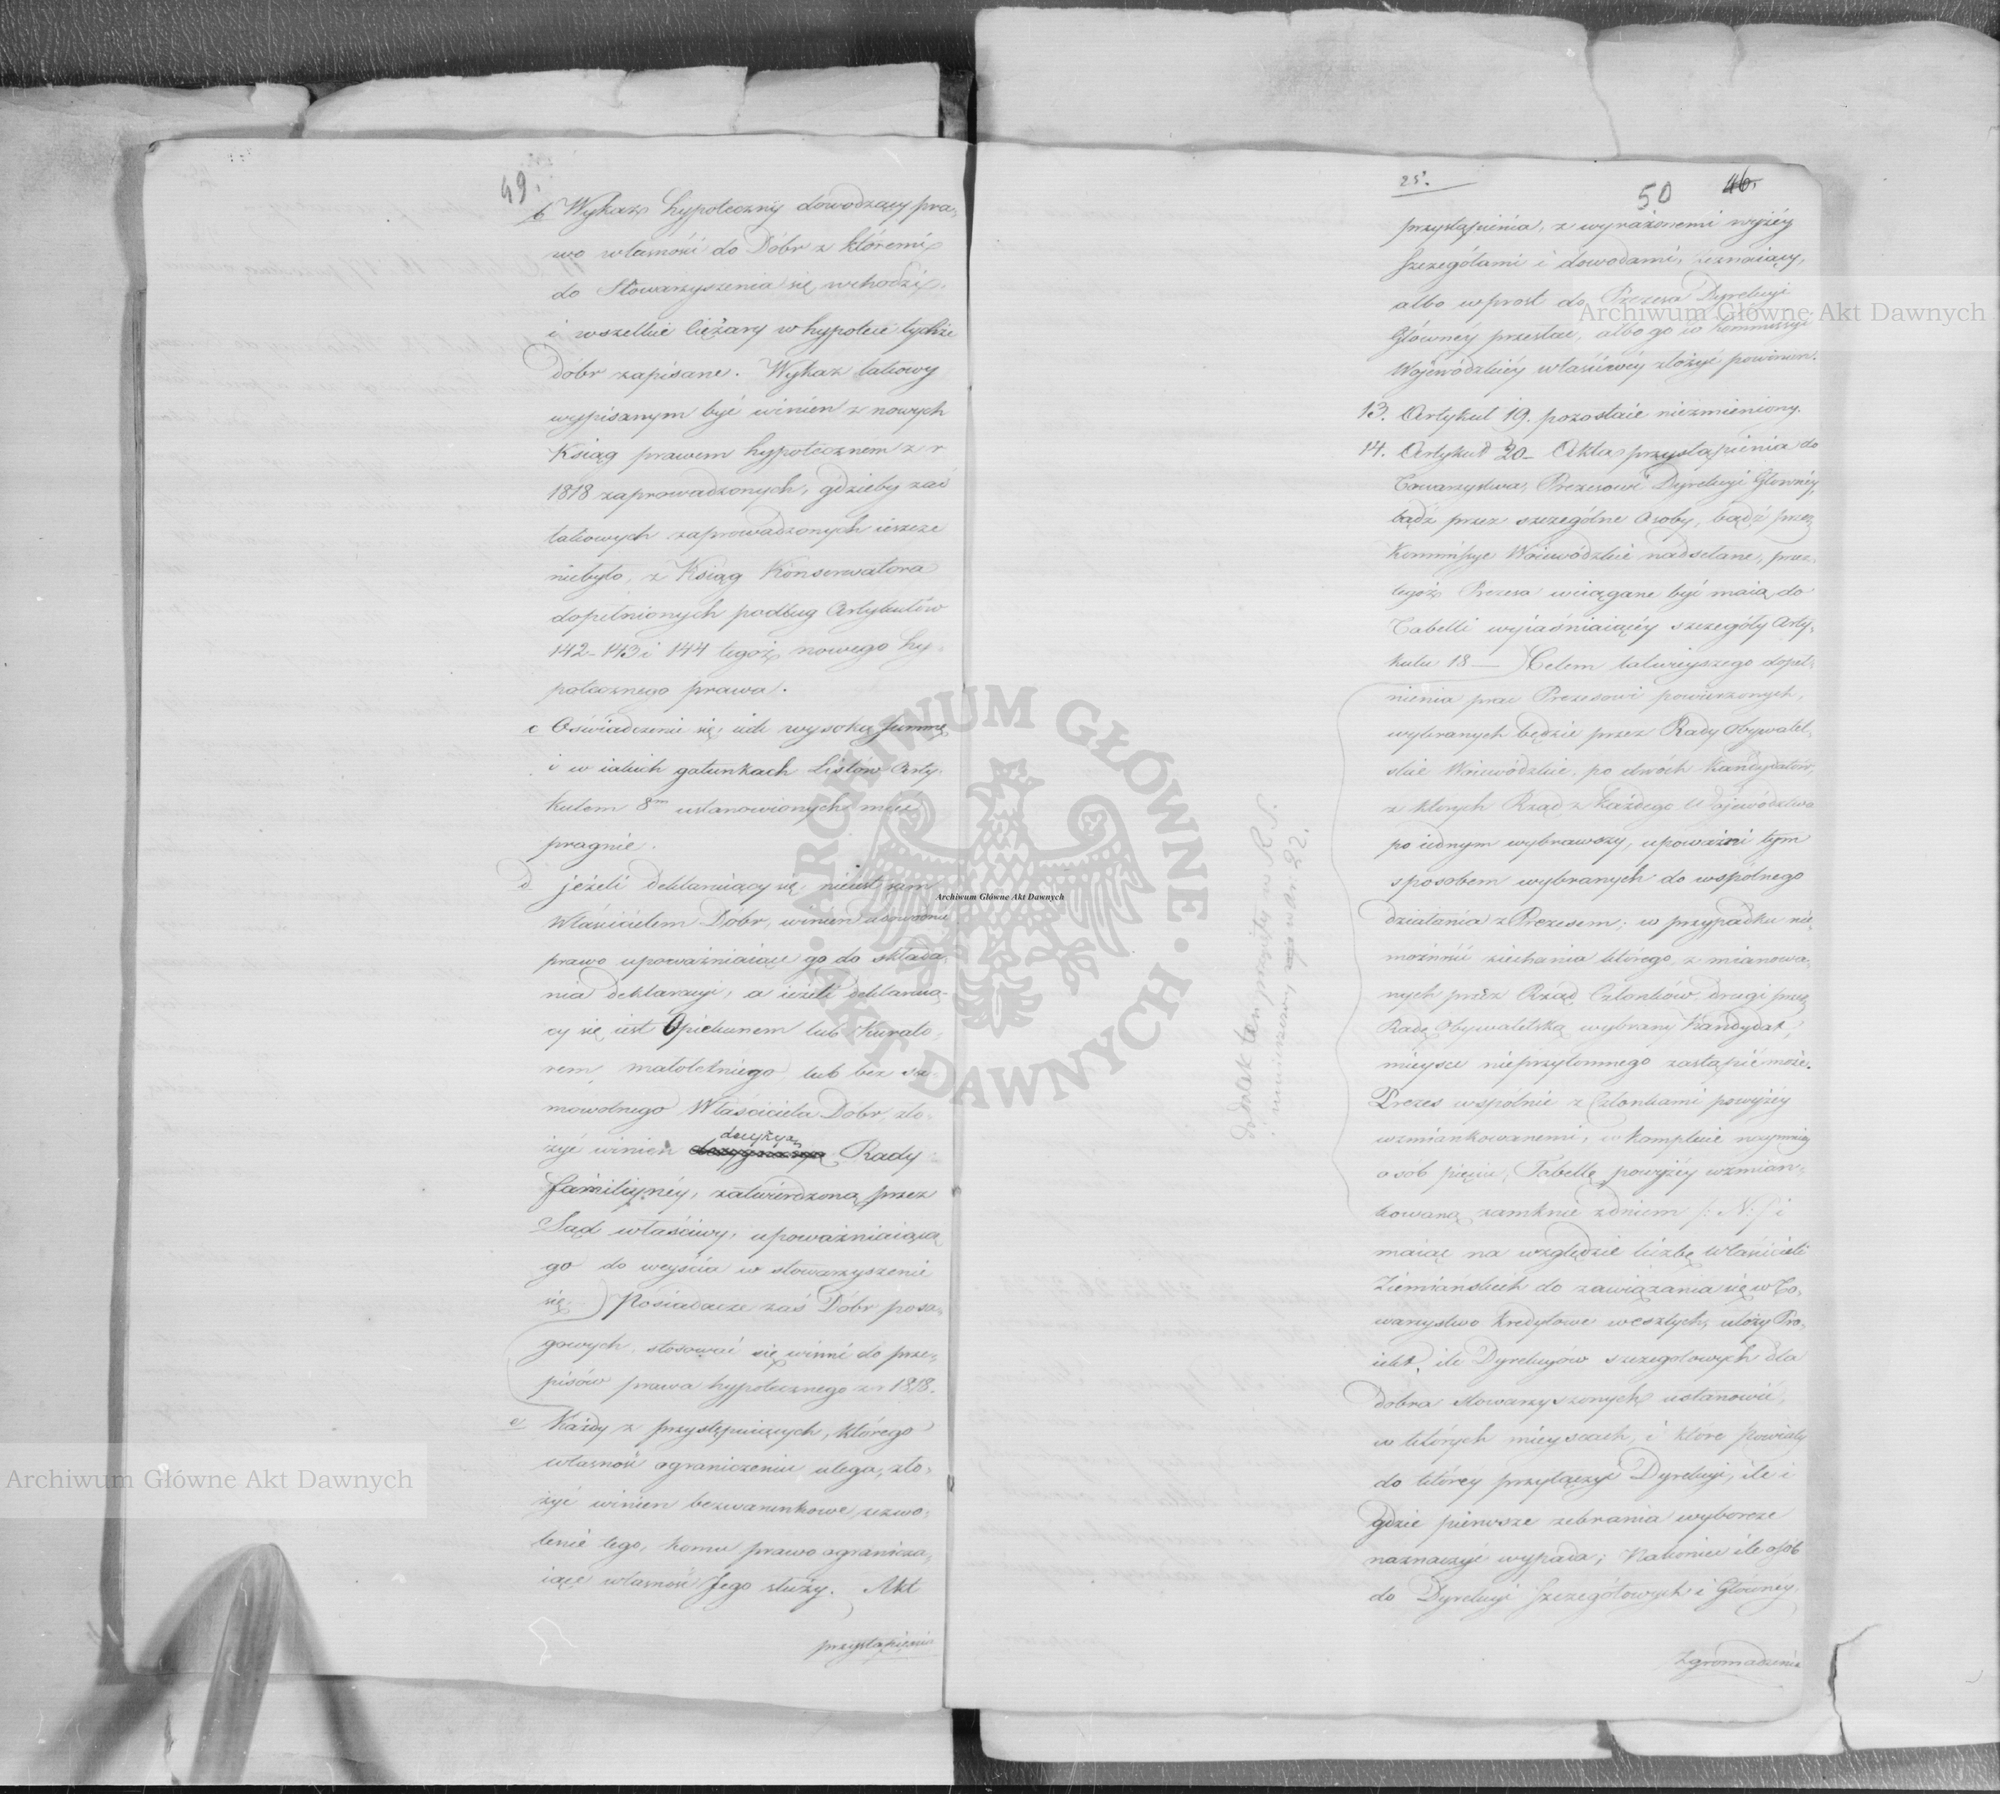 49.
b Wykaz hypoteczny dowodzący pra-
wo własności do Dóbr z któremi
do Stowarzyszenia się wchodzi,
i wszelkie ciężary w hypotece tychże
Dóbr zapisane. Wykaz takowy
wypisanym być winien z nowych
Ksiąg prawem hypotecznem z r
1818 zaprowadzonych, gdzieby zaś
takowych zaprowadzonych ieszcze
niebyło, z Ksiąg Konserwatora
dopełnionych podług Artykułów
142-143 i 144 tegoż nowego hy-
potecznego prawa.
c Oświadczenie się, iak wysoką summę
i w iakich gatunkach Listów Arty-
kułem 8m ustanowionych mieć
pragnie.
d jeżeli deklaruiący się, nieiest sam
Właścicielem Dóbr, winien udowodnić
prawo upoważniaiące go do składa-
nia deklaracyi, a ieżeli deklaruią-
cy się iest Opiekunem lub Kurato-
rem, małoletniego lub bez sa-
mowolnego Właściciela Dóbr, zło-
żyć winien decyzyą Rady
familiyney, zatwierdzoną przez
Sąd właściwy, upoważniaiącą
go do weyścia w stowarzyszenie
się.) Posiadacze zaś Dóbr posa-
gowych, stosować się winni do prze-
pisów prawa hypotecznego z r 1818.
e Każdy z przystępuiących, którego
własność ograniczeniu ulega, zło-
żyć winien bezwarunkowe zezwo-
lenie tego, komu prawo ogranicza-
iące własność Jego służy. Akt
przystąpienia
25.
50 46.
przystąpienia, z wyrażonemi wyżéy
szczegółami i dowodami, zeznaiący,
albo wprost do Prezesa Dyrekcyi
Główney przesłać, albo go w Kommissyi
Wojewódzkiéy właściwéy złożyć powinien.
13. Artykuł 19. pozostaie niezmieniony.
14. Artykuł 20- Akta przystąpienia do
Towarzystwa, Prezesowi Dyrekcyi Główney,
bądź przez szczególne osoby, bądź przez
Kommissye Woiewódzkie nadsełane, przez
tegoż Prezesa wciągane być maią do
Tabelli wyiaśniaiącéy szczegóły Arty-
kułu 18 —) Celem łatwieyszego dopeł-
nienia prac Prezesowi powierzonych,
wybranych będzie przez Rady Obywatel-
skie Woiewódzkie, po dwóch Kandydatów,
z których Rząd z każdego Wojewódzstwa
po iednym wybrawszy, upoważni tym
sposobem wybranych do wspólnego
działania z Prezesem; w przypadku nie-
możności ziechania którego, z mianowa-
nych przez Rząd Członków, drugi przez
Radę Obywatelską wybrany Kandydat,
mieysce nieprzytomnego zastąpić może.
Prezes wspólnie z Członkami powyżéy
wzmiankowanemi, w komplecie naymniéy
osob pięciu, Tabellę powyżéy wzmian-
kowaną zamknie z dniem /: N:/ i
maiąc na względzie liczbę Właścicieli
Ziemiańskich do zawiązania się w To-
warzystwo Kredytowe weszłych, ułoży Pro-
iekt, ile Dyrekcyów szczegółowych dla
dobra stowarzyszonych ustanowić,
w których mieyscach, i które Powiaty
do którey przyłączyć Dyrekcyi, ile i
gdzie pierwsze zebrania wyborcze
naznaczyć wypada; Nakoniec ile osób
do Dyrekcyi Szczegółowych i Główney,
Zgromadzenia
dodatek ten przyięty w R. S.
Archiwum Główne Akt Dawnych
Archiwum Główne Akt Dawnych
Archiwum Główne Akt Dawnych
ARCHIWUM GŁÓWNE · AKT DAWNYCH ·